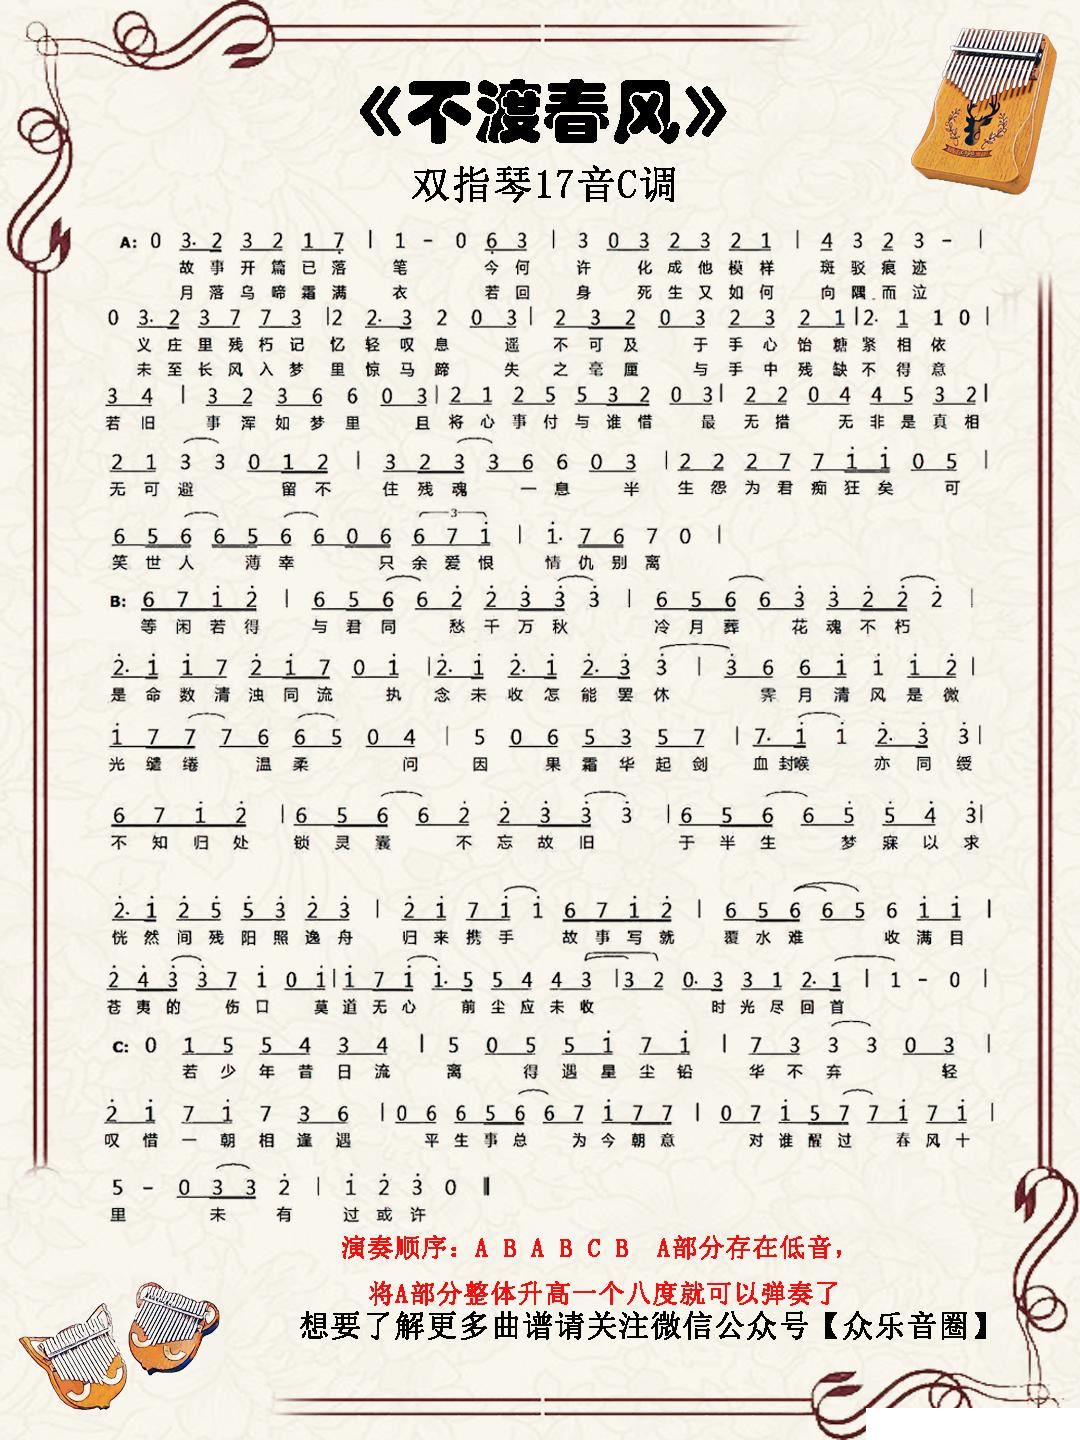 《不渡春风》
双指琴17音C调
A: 0 3· 2 3 2 1 7̣ | 1 - 0 6̣ 3 | 3 0 3 2 3 2 1 | 4 3 2 3 - |
故事开篇已落笔 今何许 化成他模样 斑驳痕迹
月落乌啼霜满衣 若回身 死生又如何 向隅而泣
0 3· 2 3 7 7 3 | 2 2· 3 2 0 3 | 2 3 2 0 3 2 3 2 1 | 2· 1 1 0 |
义庄里残朽记忆轻叹息 遥不可及 于手心饴糖紧相依
未至长风入梦里惊马蹄 失之毫厘 与手中残缺不得意
3 4 | 3 2 3 6 6 0 3 | 2 1 2 5 5 3 2 0 3 | 2 2 0 4 4 5 3 2 |
若旧 事浑如梦里 且将心事付与谁惜 最无措 无非是真相
2 1 3 3 0 1 2 | 3 2 3 3 6 6 0 3 | 2 2 2 7 7 i i 0 5 |
无可避 留不住残魂 一息半生怨为君痴狂矣 可
6 5 6 6 5 6 6 0 6 6 7 i | i· 7 6 7 0 |
3
笑世人 薄幸 只余爱恨 情仇别离
B: 6 7 i 2̇ | 6 5 6 6 2̇ 2̇ 3̇ 3̇ 3̇ | 6 5 6 6 3̇ 3̇ 2̇ 2̇ 2̇ |
等闲若得 与君同 愁千万秋 冷月葬 花魂不朽
2̇· i i 7 2̇ i 7 0 i | 2̇· i 2̇· i 2̇· 3̇ 3̇ | 3̇ 6 6 i i i 2̇ |
是命数清浊同流 执念未收怎能罢休 霁月清风是微
i 7 7 7 6 6 5 0 4 | 5 0 6 5 3 5 7 | 7· i i 2̇· 3̇ 3̇ |
光缱绻 温柔 问因 果霜华起剑 血封喉 亦同绶
6 7 i 2̇ | 6 5 6 6 2̇ 2̇ 3̇ 3̇ 3̇ | 6 5 6 6 5̇ 5̇ 4̇ 3̇ |
不知归处 锁灵囊 不忘故旧 于半生 梦寐以求
2̇· i 2̇ 5̇ 5̇ 3̇ 2̇ 3̇ | 2̇ i 7 i i 6 7 i 2̇ | 6 5 6 6 5 6 i i |
恍然间残阳照逸舟 归来携手 故事写就 覆水难 收满目
2̇ 4̇ 3̇ 3̇ 7 i 0 i | i 7 i i· 5 5 4 4 3 | 3 2 0· 3 3 3 1 2· 1 | 1 - 0 |
苍夷的 伤口 莫道无心 前尘应未收 时光尽回首
C: 0 1 5 5 4 3 4 | 5 0 5 5 i 7 i | 7 3 3 3 0 3 |
若少年昔日流离 得遇星尘铅华不弃 轻
2̇ i 7 i 7 3 6 | 0 6 6 5 6 6 7 i 7 7 | 0 7 i 5 7 7 i 7 i |
叹惜一朝相逢遇 平生事总 为今朝意 对谁醒过 春风十
5 - 0 3 3 2̇ | i 2̇ 3̇ 0 ‖
里 未有过或许
演奏顺序：A B A B C B A部分存在低音，
将A部分整体升高一个八度就可以弹奏了
想要了解更多曲谱请关注微信公众号【众乐音圈】